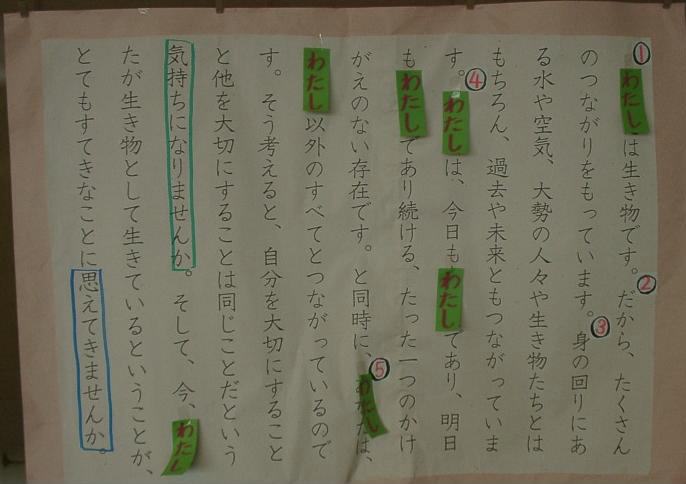 ①わたしは生き物です。②だから、たくさん
のつながりをもっています。③身の回りにあ
る水や空気、大勢の人々や生き物たちとは
もちろん、過去や未来ともつながっていま
す。④わたしは、今日もわたしであり、明日
もわたしであり続ける、たった一つのかけ
がえのない存在です。と同時に、⑤わたしは、
わたし以外のすべてとつながっているので
す。そう考えると、自分を大切にすること
と他を大切にすることは同じことだという
気持ちになりませんか。そして、今、わたし
たが生き物として生きているということが、
とてもすてきなことに思えてきませんか。